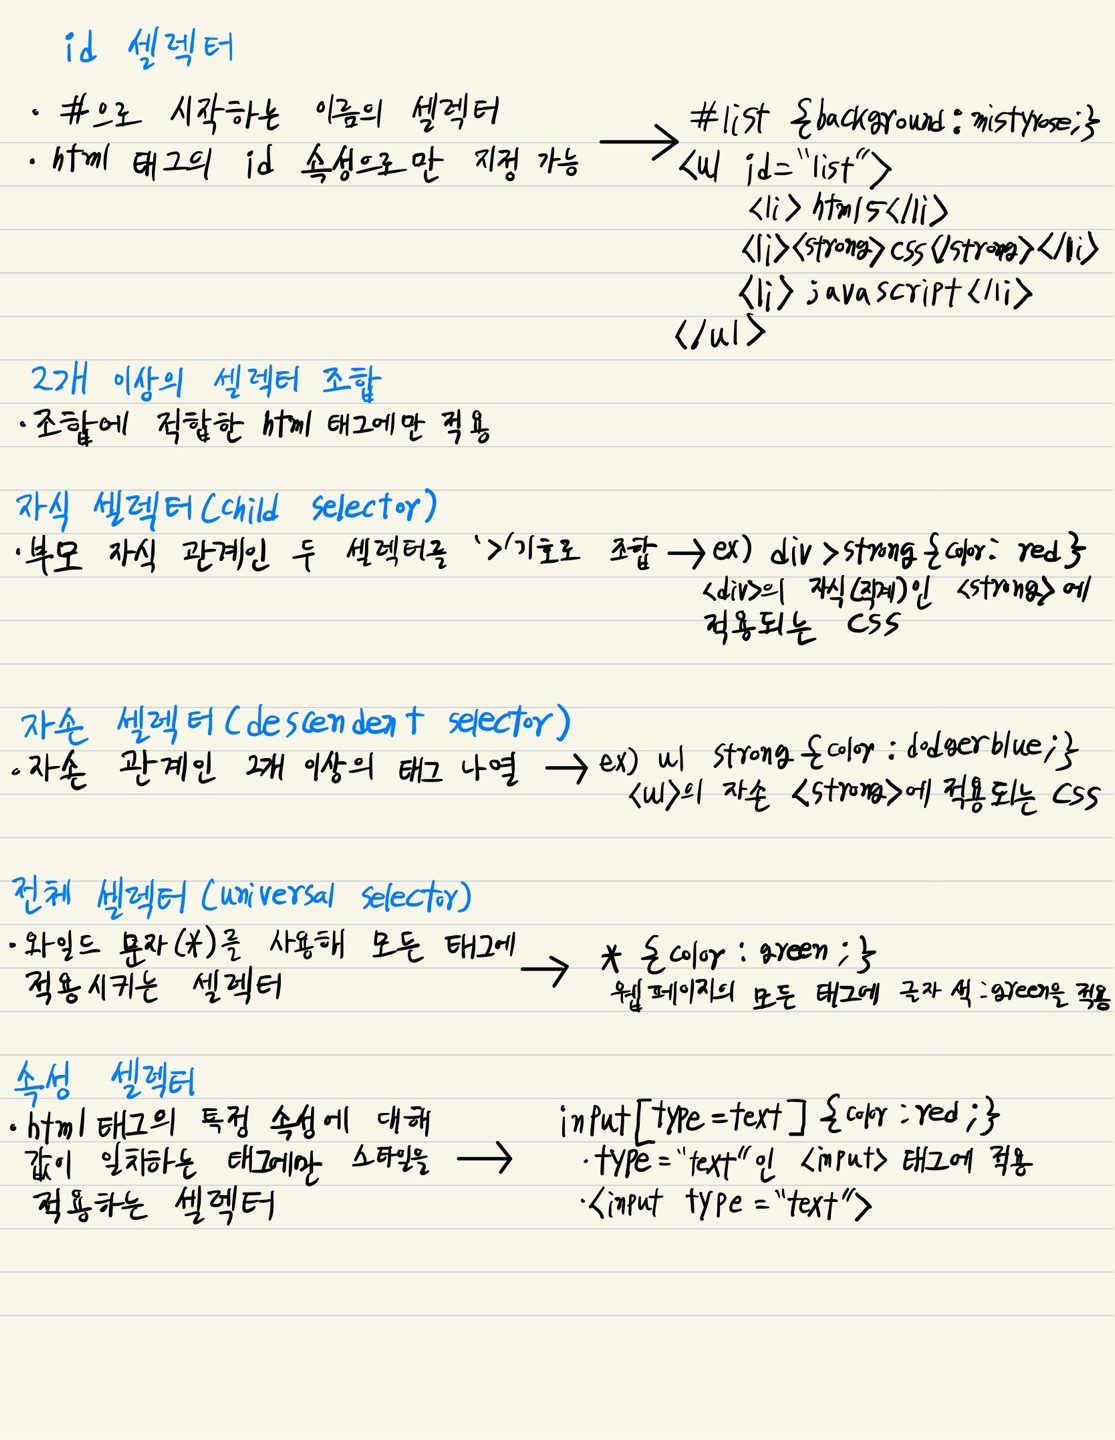 id 셀렉터
· #으로 시작하는 이름의 셀렉터
· html 태그의 id 속성으로만 지정 가능 →
#list {background: mistyrose;}
<ul id="list">
<li> html5</li>
<li><strong>css</strong></li>
<li> javascript</li>
</ul>
2개 이상의 셀렉터 조합
· 조합에 적합한 html 태그에만 적용
자식 셀렉터(child selector)
· 부모 자식 관계인 두 셀렉터를 '>'기호로 조합 → ex) div >strong {color: red}
<div>의 자식(직계)인 <strong>에
적용되는 CSS
자손 셀렉터(descendent selector)
· 자손 관계인 2개 이상의 태그 나열 → ex) ul strong {color : dodgerblue;}
<ul>의 자손 <strong>에 적용되는 CSS
전체 셀렉터(universal selector)
· 와일드 문자(*)를 사용해 모든 태그에
적용시키는 셀렉터 →
* {color : green ;}
웹페이지의 모든 태그에 글자 색 : green을 적용
속성 셀렉터
· html 태그의 특정 속성에 대해
값이 일치하는 태그에만 스타일을 →
적용하는 셀렉터
input[type=text] {color : red ;}
· type="text"인 <input> 태그에 적용
· <input type = "text">